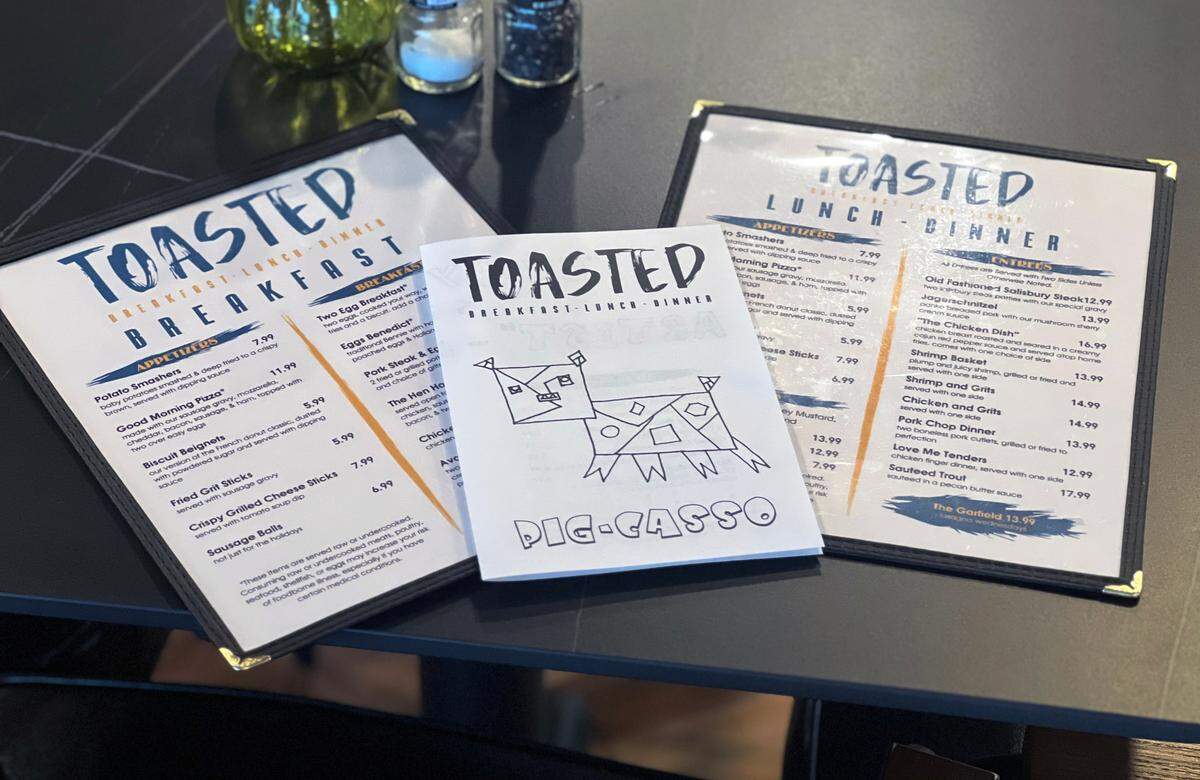 TOASTED
BREAKFAST-LUNCH-DINNER
BREAKFAST
APPETIZERS
Potato Smashers 7.99
baby potatoes smashed & deep fried to a crispy
brown, served with dipping sauce
Good Morning Pizza* 11.99
made with our sausage gravy, mozzarella,
cheddar, bacon, sausage, & ham, topped with
two over easy eggs
Biscuit Beignets 5.99
our version of the French donut classic, dusted
with powdered sugar and served with dipping
sauce
Fried Grit Sticks 5.99
served with sausage gravy
Crispy Grilled Cheese Sticks 7.99
served with tomato soup dip
Sausage Balls 6.99
not just for the holidays
*These items are served raw or undercooked.
Consuming raw or undercooked meats, poultry,
seafood, shellfish, or eggs may increase your risk
of foodborne illness, especially if you have
certain medical conditions.
BREAKFAS
Two Egg Breakfast*
two eggs, cooked your way,
Eggs Benedict*
traditional Bennie with
poached eggs &
Pork Steak &
2 fried or grilled
and choice of
The Hen
served open
TOASTED
BREAKFAST-LUNCH-DINNER
PIG-CASSO
TOASTED
BREAKFAST-LUNCH-DINNER
LUNCH-DINNER
APPETIZERS
Smashers 7.99
potatoes smashed & deep fried to a crispy
served with dipping sauce
Morning Pizza* 11.99
our sausage gravy, mozzarella,
bacon, sausage, & ham, topped with
5.99
French donut classic, dusted
and served with dipping
5.99
Cheese Sticks 7.99
6.99
Mustard,
13.99
12.99
7.99
ENTREES
All Entrees are Served with Two Sides Unless
Otherwise Noted.
Old Fashioned Salisbury Steak 12.99
two salisbury steak patties with our special gravy
Jagerschnitzel 13.99
panko breaded pork with our mushroom sherry
cream sauce
"The Chicken Dish" 16.99
chicken breast roasted and seared in a creamy
cajun red pepper sauce and served atop home
fries, comes with one choice of side
Shrimp Basket 13.99
plump and juicy shrimp, grilled or fried and
served with one side
Shrimp and Grits 14.99
served with one side
Chicken and Grits 14.99
served with one side
Pork Chop Dinner 13.99
two boneless pork cutlets, grilled or fried to
perfection
Love Me Tenders 12.99
chicken finger dinner, served with one side
Sauteed Trout 17.99
sauteed in a pecan butter sauce
The Garfield 13.99
lasagna wednesdays